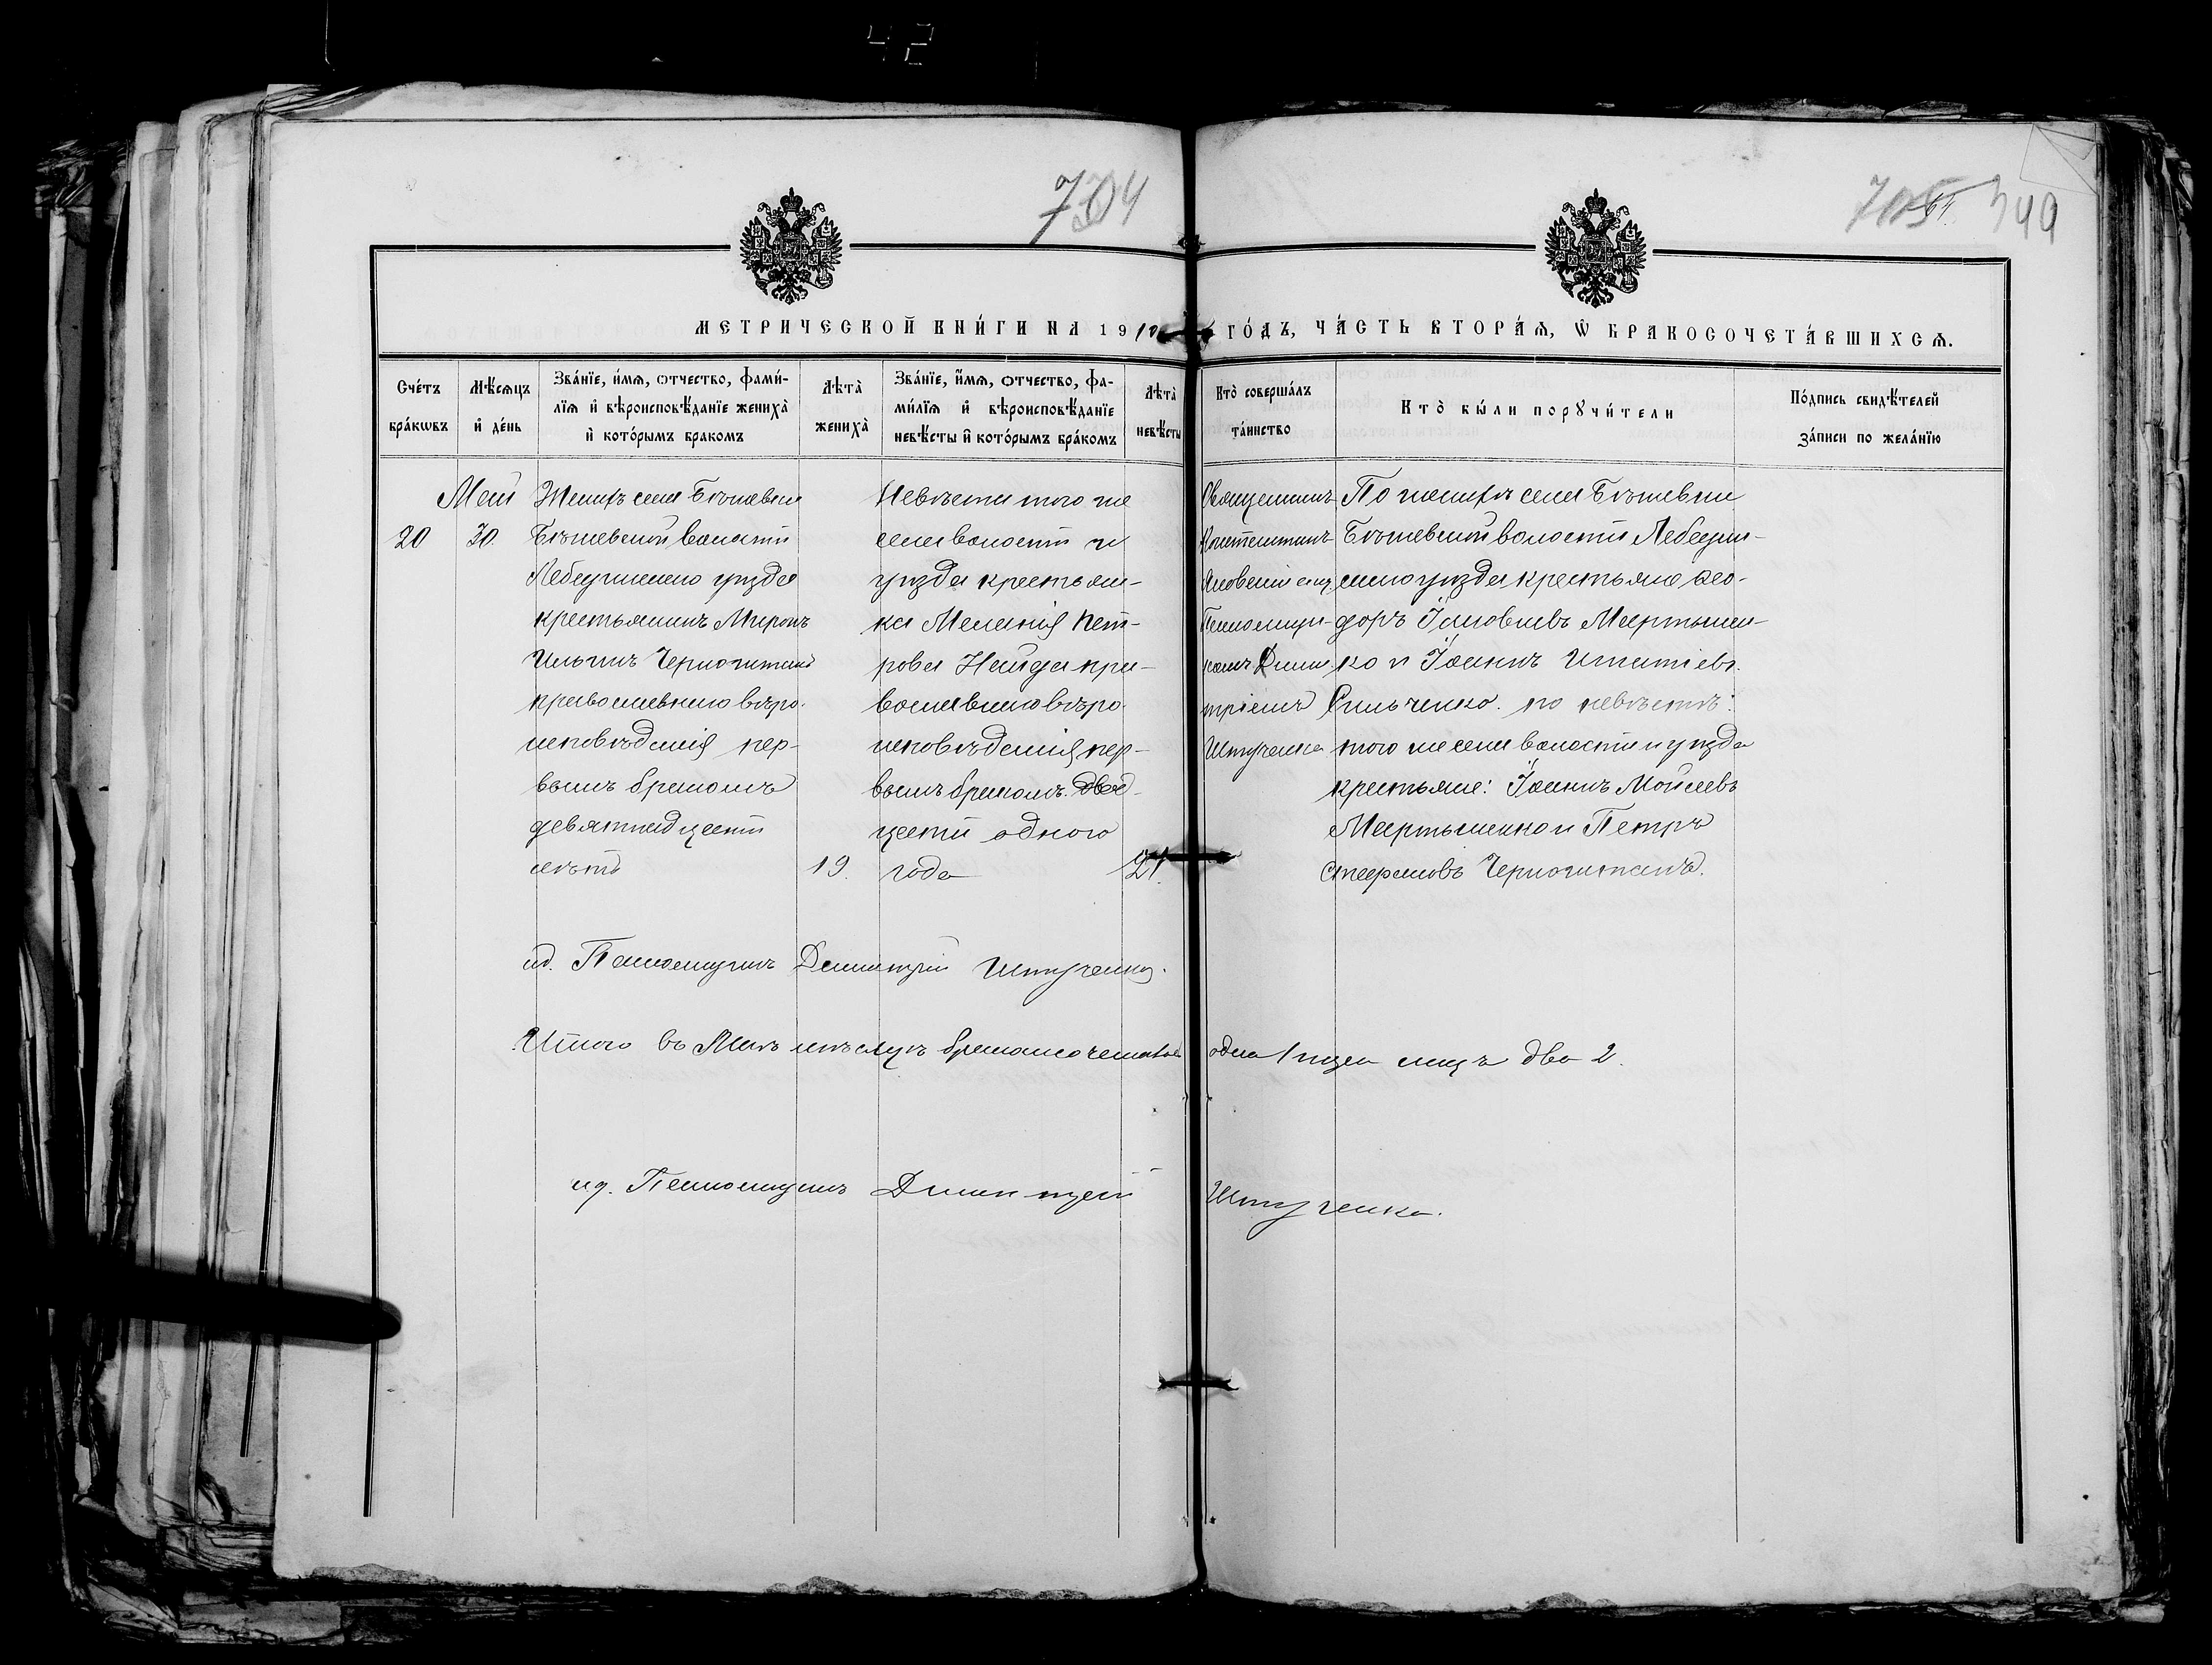 42
704
705
349
МЕТРИЧЕСКОЙ КНИ́ГИ НА 1910 ГО́ДЪ, ЧА́СТЬ ВТОРА́Ѧ, Ѡ҆ БРАКОСОЧЕТА́ВШИХСѦ.
Сче́тъ бра́кѡвъ
Мѣ́сѧцъ и҆ де́нь
Зва́нїе, и҆́мѧ, ѻтчество, фами́-
лїѧ и҆ вѣроисповѣ́данїе жениха̀
и҆ кото́рымъ бракомъ
Лѣта̀ жениха̀
Зва́нїе, и҆́мѧ, ѻтчество, фа-
ми́лїѧ и҆ вѣроисповѣ́данїе
невѣ́сты и҆ кото́рымъ бра́комъ
Лѣта̀ невѣ́сты
Кто̀ соверша́лъ та́инство
Кто̀ бы́ли порꙋчи́тели
По́дпись свидѣ́телей за́писи по жела́нїю
Май
20
30.
Женихъ села Бѣшевки
Бѣшевской волости
Лебединскаго уѣзда
крестьянинъ Миронъ
Ильинъ Черногитанъ
православнаго вѣро-
исповѣданія пер-
вымъ бракомъ
девятнадцати
лѣтъ
19.
Невѣста того же
села волости и
уѣзда крестьян-
ка Меланія Пет-
рова Найда пра-
вославнаго вѣро-
исповѣданія, пер-
вымъ бракомъ. двад-
цати одного
года
21.
Священникъ
Константинъ
Псаломщи-
комъ Дими-
тріемъ
Штученко
По женихѣ села Бѣшевки
Бѣшевской волости Лебедин-
скаго уѣзда крестьяне Ѳео-
доръ Іаковлевъ Мартынен-
ко и Іоаннъ Игнатіевъ
Сильченко. по невѣстѣ:
того же села волости и уѣзда
крестьяне: Іоаннъ Мойсеевъ
Мартыненко и Петръ
Стефановъ Черногитанъ.
ид. Псаломщикъ Димитрій Штученко.
Итого въ Маѣ мѣсяцѣ бракосочеталась одна 1 пара лицъ два 2.
ид. Псаломщикъ Димитрій Штученко.